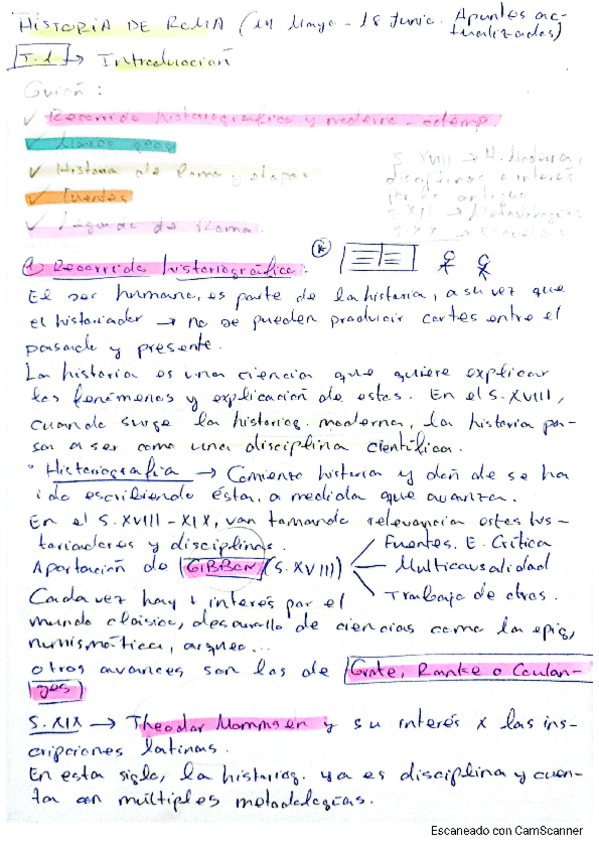 HISTORIA DE ROMA (14 Mayo - 18 Junio. Apuntes ac-
tualizados)
T.1 → Introducción
Guión:
✓ Recorrido historiográfico y moderno-
✓ Marco geog
✓ Historia de Roma y etapas
✓ Fuentes
✓ Legado de Roma
S. XVIII → H. moderna,
disciplinas e interés
por lo antiguo
S. XIX → Metodologías
S. XX → Escuelas
a) Recorrido historiográfico:
El ser humano, es parte de la historia, a su vez que
el historiador → no se pueden producir cortes entre el
pasado y presente.
La historia es una ciencia que quiere explicar
los fenómenos y explicación de estos. En el S. XVIII,
cuando surge la historiog. moderna, la historia pa-
sa a ser como una disciplina científica.
• Historiografía → Comiento historia y de se ha
ido escribiendo ésta, a medida que avanza.
En el S. XVIII - XIX, van tomando relevancia estos his-
toriadores y disciplinas.
Aportación de GIBBON (S. XVIII)
Fuentes. E. Crítica
Multicausalidad
Trabajo de otros.
Cada vez hay + interés por el
mundo clásico, desarrollo de ciencias como la epig,
numismática, arqueo...
otros avances son los de Grote, Ranke o Coulan-
ges
S. XIX → Theodor Mommsen y su interés x las ins-
cripciones latinas.
En este siglo, la historiog. ya es disciplina y cuen-
ta con múltiples metodologías.
Escaneado con CamScanner